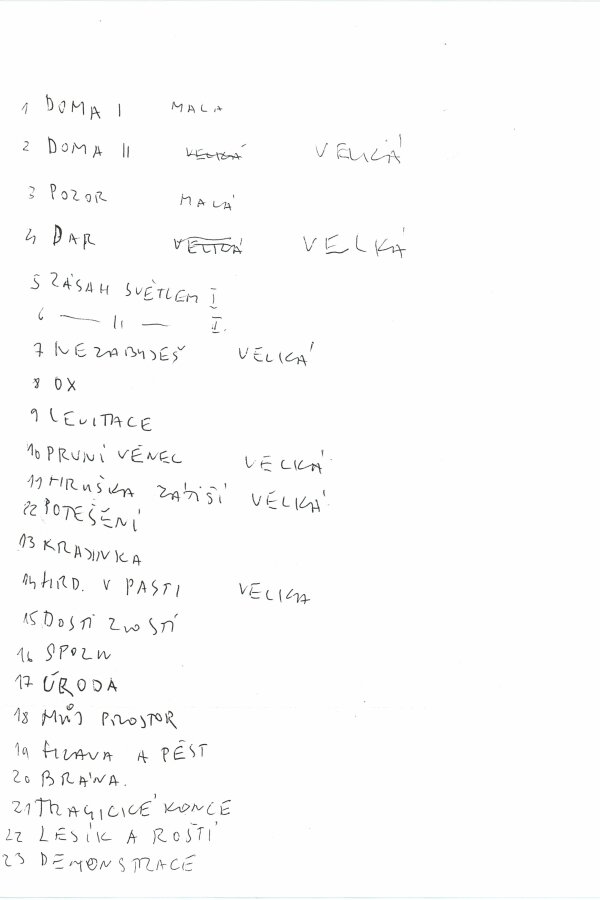 1 DOMA I MALA
2 DOMA II VELKÁ VELKÁ
3 POZOR MALÁ
4 DAR VELKÁ VELKÁ
5 ZÁSAH SVĚTLEM I
6 — || — II.
7 NEZABYDEŠ VELKÁ
8 OX
9 LEVITACE
10 PRVNÍ VĚNEC VELKÁ
11 HRUŠKA ZÁTIŠÍ VELKÁ
22 POTĚŠENÍ
13 KRADINKA
14 HRD. V PASTI VELKA
15 DOSTI ZLOSTÍ
16
17 ÚRODA
18 MŮJ PROSTOR
19 HLAVA A PĚST
20 BRÁNA.
21 TRAGICKÉ KONCE
22 LESÍK A ROŠTÍ
23 DEMONSTRACE